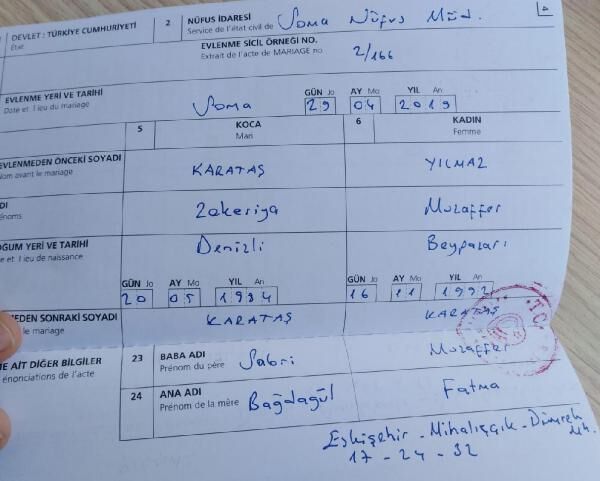 DEVLET : TÜRKİYE CUMHURİYETİ
État
2 NÜFUS İDARESİ Soma Nüfus Müd.
Service de l'état civil de
EVLENME SİCİL ÖRNEĞİ NO. 2/166
Extrait de l'acte de MARIAGE no
EVLENME YERİ VE TARİHİ Soma GÜN Jo AY Mo YIL An
Date et lieu du mariage 29 04 2019
5 KOCA 6 KADIN
Mari Femme
EVLENMEDEN ÖNCEKİ SOYADI KARATAŞ YILMAZ
Nom avant le mariage
ADI Zekeriya Muzaffer
Prénoms
DOĞUM YERİ VE TARİHİ Denizli Beypazarı
Date et lieu de naissance
GÜN Jo AY Mo YIL An GÜN Jo AY Mo YIL An
20 05 1934 16 11 1992
MEDEN SONRAKİ SOYADI KARATAŞ KARATAŞ
le mariage
T.C.
NE AİT DİĞER BİLGİLER 23 BABA ADI Sabri Muzaffer
énonciations de l'acte Prénom du père
24 ANA ADI Bağdagül Fatma
Prénom de la mère
Eskişehir - Mihalıççık - Dümrek Mh.
17 - 24 - 32